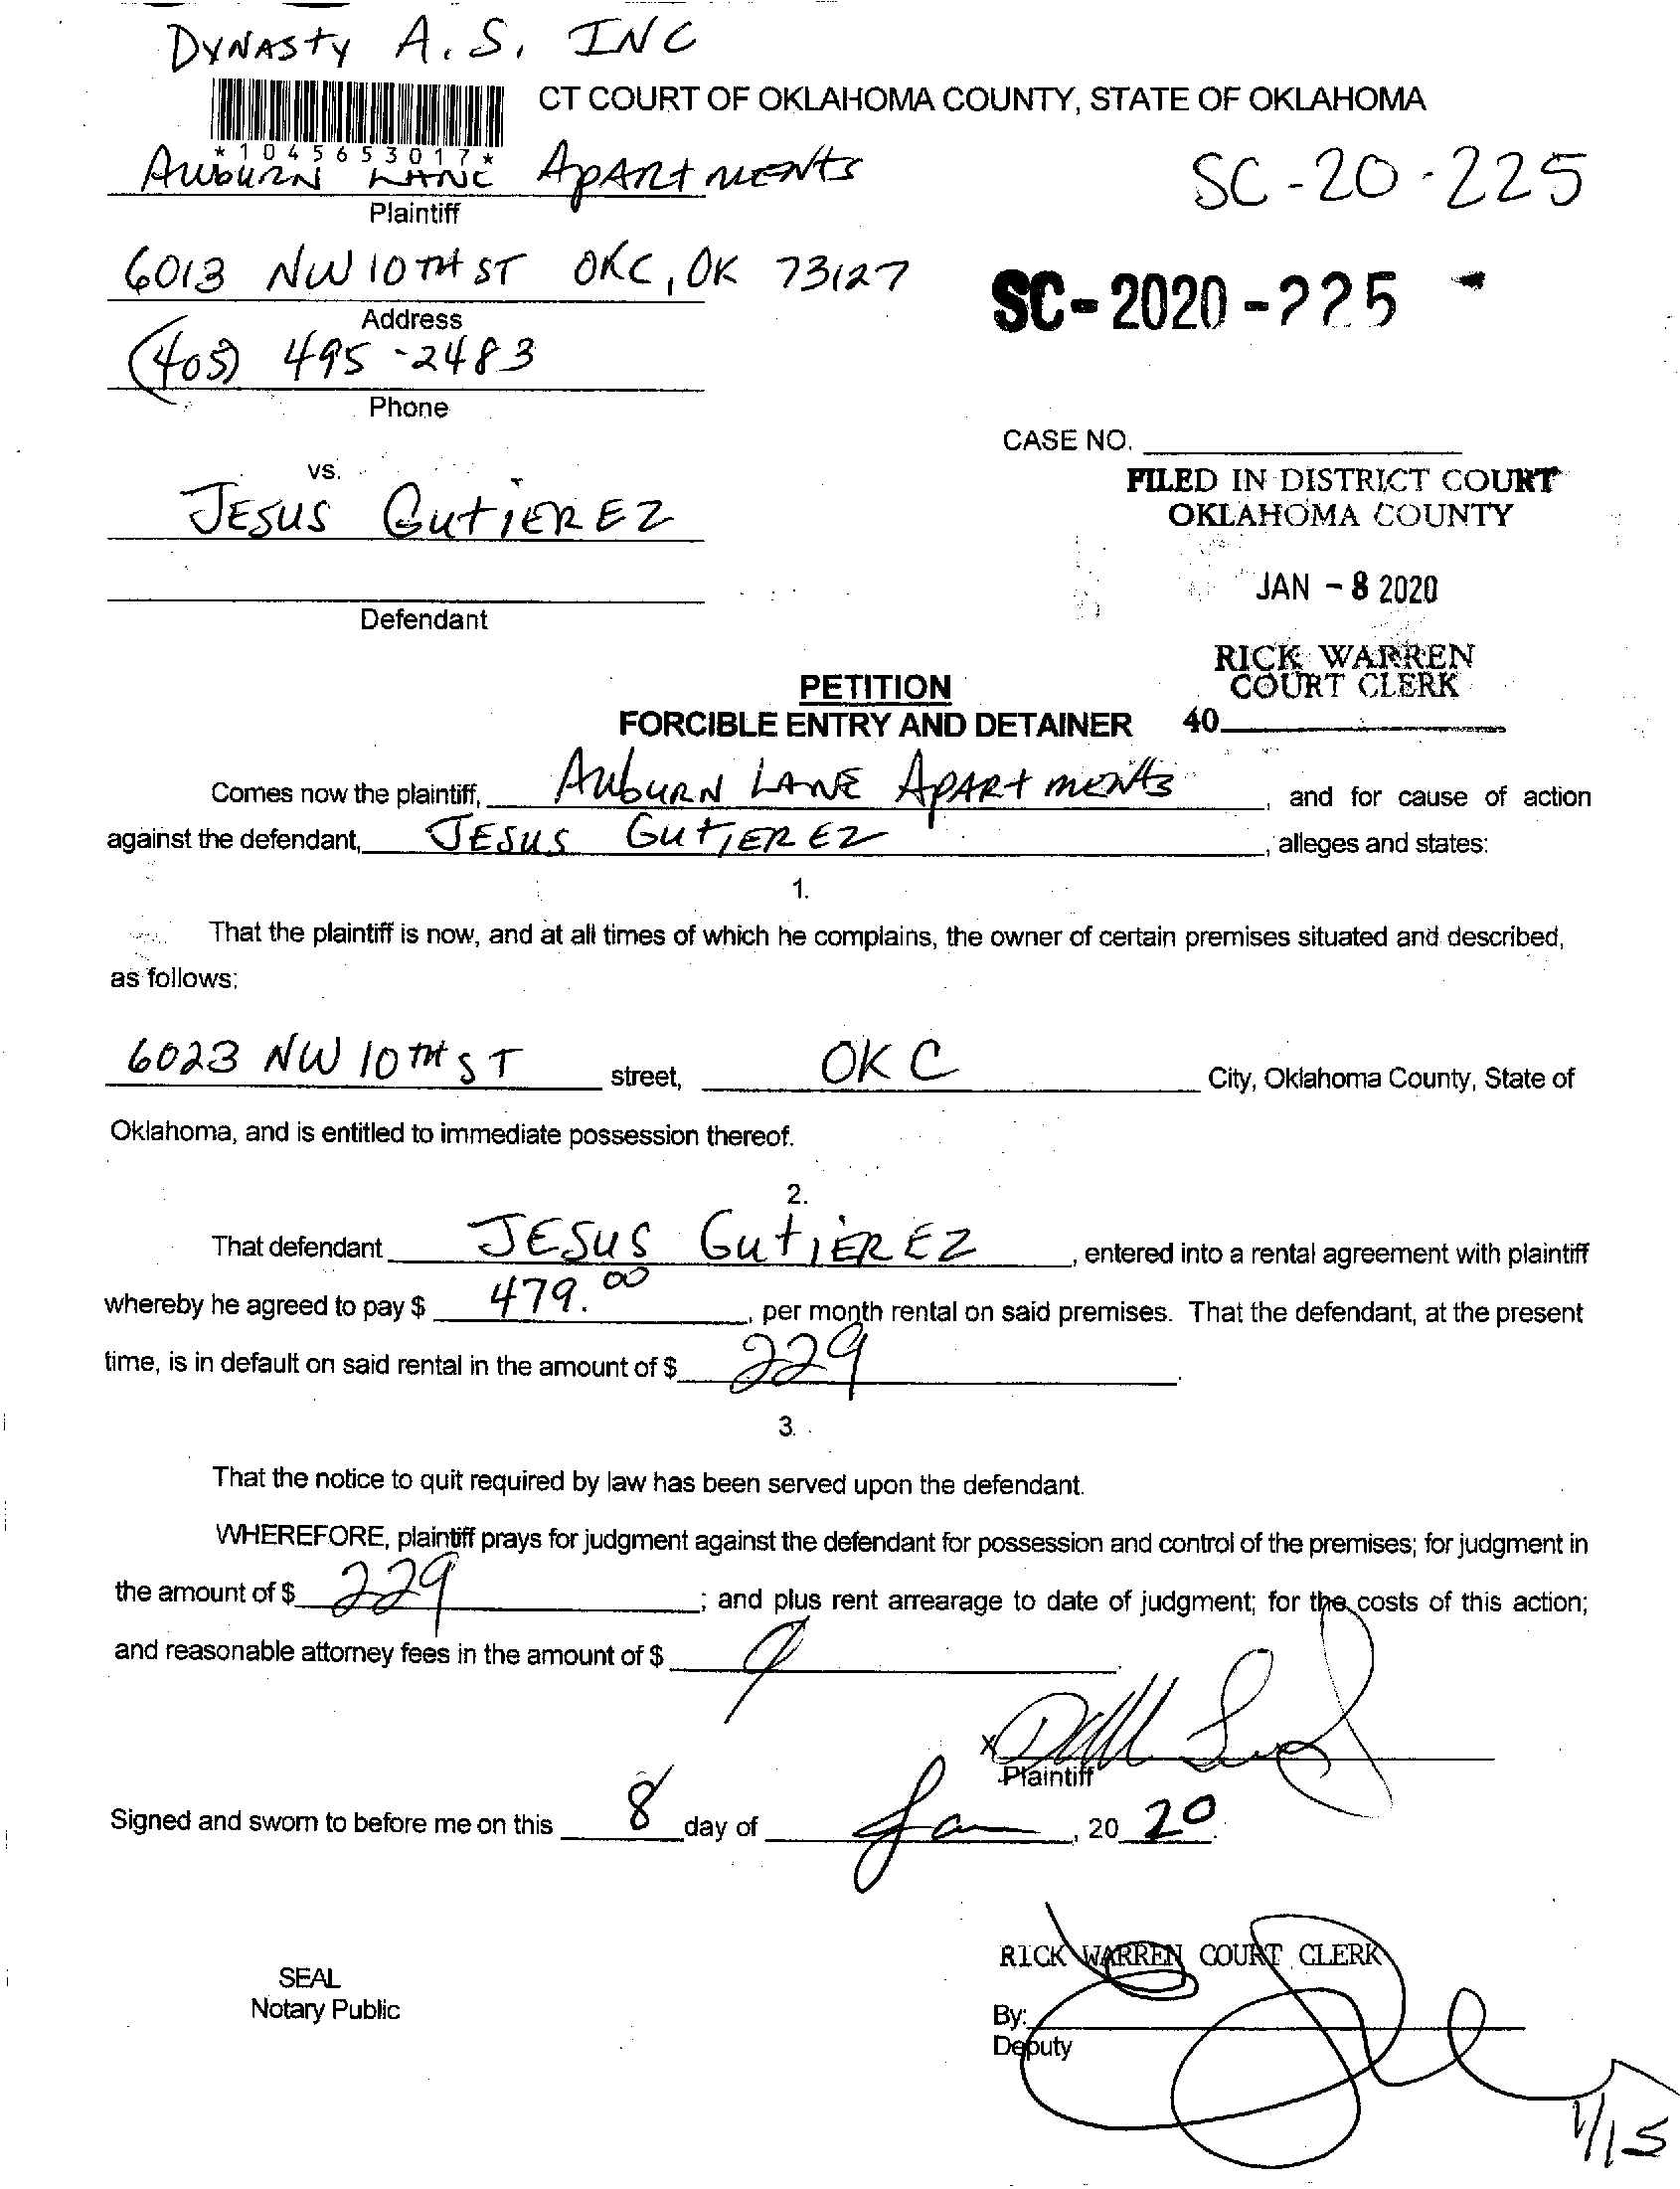 DYNASTY A.S. INC
CT COURT OF OKLAHOMA COUNTY, STATE OF OKLAHOMA
*1045653017*
AUBURN LANE APARTMENTS
SC-20-225
Plaintiff
6013 NW 10TH ST OKC, OK 73127
SC-2020-225
Address
(405) 495-2483
Phone
CASE NO.
vs.
FILED IN DISTRICT COURT
OKLAHOMA COUNTY
JESUS GUTIEREZ
JAN - 8 2020
Defendant
RICK WARREN
COURT CLERK
PETITION
FORCIBLE ENTRY AND DETAINER
40
Comes now the plaintiff, AUBURN LANE APARTMENTS, and for cause of action
against the defendant, JESUS GUTIEREZ, alleges and states:
1.
That the plaintiff is now, and at all times of which he complains, the owner of certain premises situated and described,
as follows:
6023 NW 10TH ST street, OKC City, Oklahoma County, State of
Oklahoma, and is entitled to immediate possession thereof.
2.
That defendant JESUS GUTIEREZ, entered into a rental agreement with plaintiff
whereby he agreed to pay $ 479.00, per month rental on said premises. That the defendant, at the present
time, is in default on said rental in the amount of $ 229.
3.
That the notice to quit required by law has been served upon the defendant.
WHEREFORE, plaintiff prays for judgment against the defendant for possession and control of the premises; for judgment in
the amount of $ 229; and plus rent arrearage to date of judgment; for the costs of this action;
and reasonable attorney fees in the amount of $
X
Plaintiff
Signed and sworn to before me on this 8 day of Jan, 20 20.
RICK WARREN COURT CLERK
SEAL
Notary Public
By:
Deputy
1/15